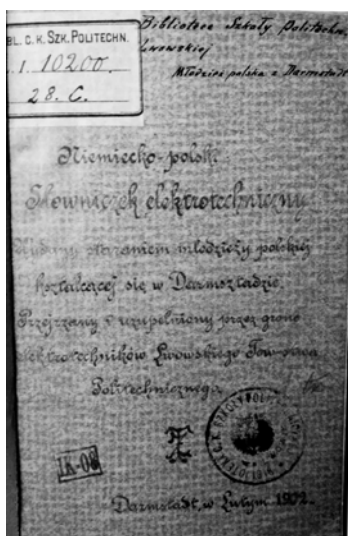 BL. C. K. SZK. POLITECHN.
I. 10200.
28. C.
Bibliotece Szkoły Politechn.
Lwowskiej
Młodzież polska z Darmstadt
Niemiecko-polski
Słowniczek elektrotechniczny
Wydany staraniem młodzieży polskiej
kształcącej się w Darmsztadzie.
Przejrzany i uzupełniony przez grono
elektrotechników Lwowskiego Towarzystwa
Politechnicznego
IK-08
Darmstadt, w Lutym 1902.